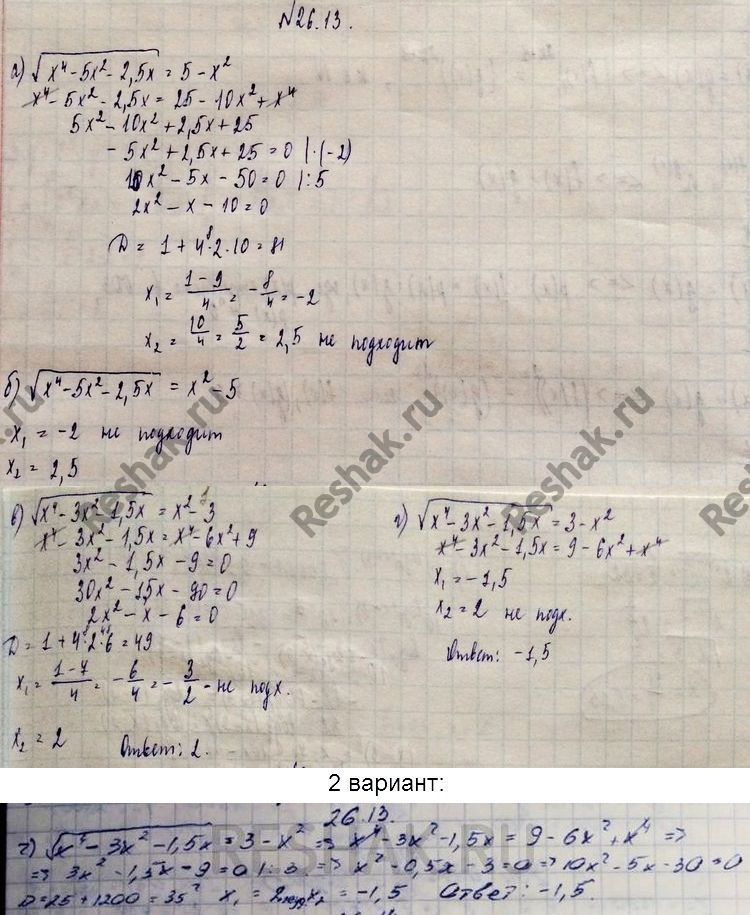 №26.13.
а) √(x⁴ - 5x² - 2,5x) = 5 - x²
x⁴ - 5x² - 2,5x = 25 - 10x² + x⁴
5x² - 10x² + 2,5x + 25
- 5x² + 2,5x + 25 = 0 | · (-2)
10x² - 5x - 50 = 0 | : 5
2x² - x - 10 = 0
D = 1 + 4 · 2 · 10 = 81
x₁ = (1 - 9)/4 = -8/4 = -2
x₂ = 10/4 = 5/2 = 2,5 не подходит
б) √(x⁴ - 5x² - 2,5x) = x² - 5
x₁ = -2 не подходит
x₂ = 2,5
в) √(x⁴ - 3x² - 1,5x) = x² - 3
x⁴ - 3x² - 1,5x = x⁴ - 6x² + 9
3x² - 1,5x - 9 = 0
30x² - 15x - 90 = 0
2x² - x - 6 = 0
D = 1 + 4 · 2 · 6 = 49
x₁ = (1 - 7)/4 = -6/4 = -3/2 - не подх.
x₂ = 2 Ответ: 2.
г) √(x⁴ - 3x² - 1,5x) = 3 - x²
x⁴ - 3x² - 1,5x = 9 - 6x² + x⁴
x₁ = -1,5
x₂ = 2 не подх.
Ответ: -1,5
2 вариант:
26.13.
г) √(x⁴ - 3x² - 1,5x) = 3 - x² => x⁴ - 3x² - 1,5x = 9 - 6x² + x⁴ =>
=> 3x² - 1,5x - 9 = 0 | : 3 => x² - 0,5x - 3 = 0 => 10x² - 5x - 30 = 0
D = 25 + 1200 = 35² x₁ = 2 x₂ = -1,5 Ответ: -1,5.
Reshak.ru
Reshak.ru
Reshak.ru
RESHAK.RU